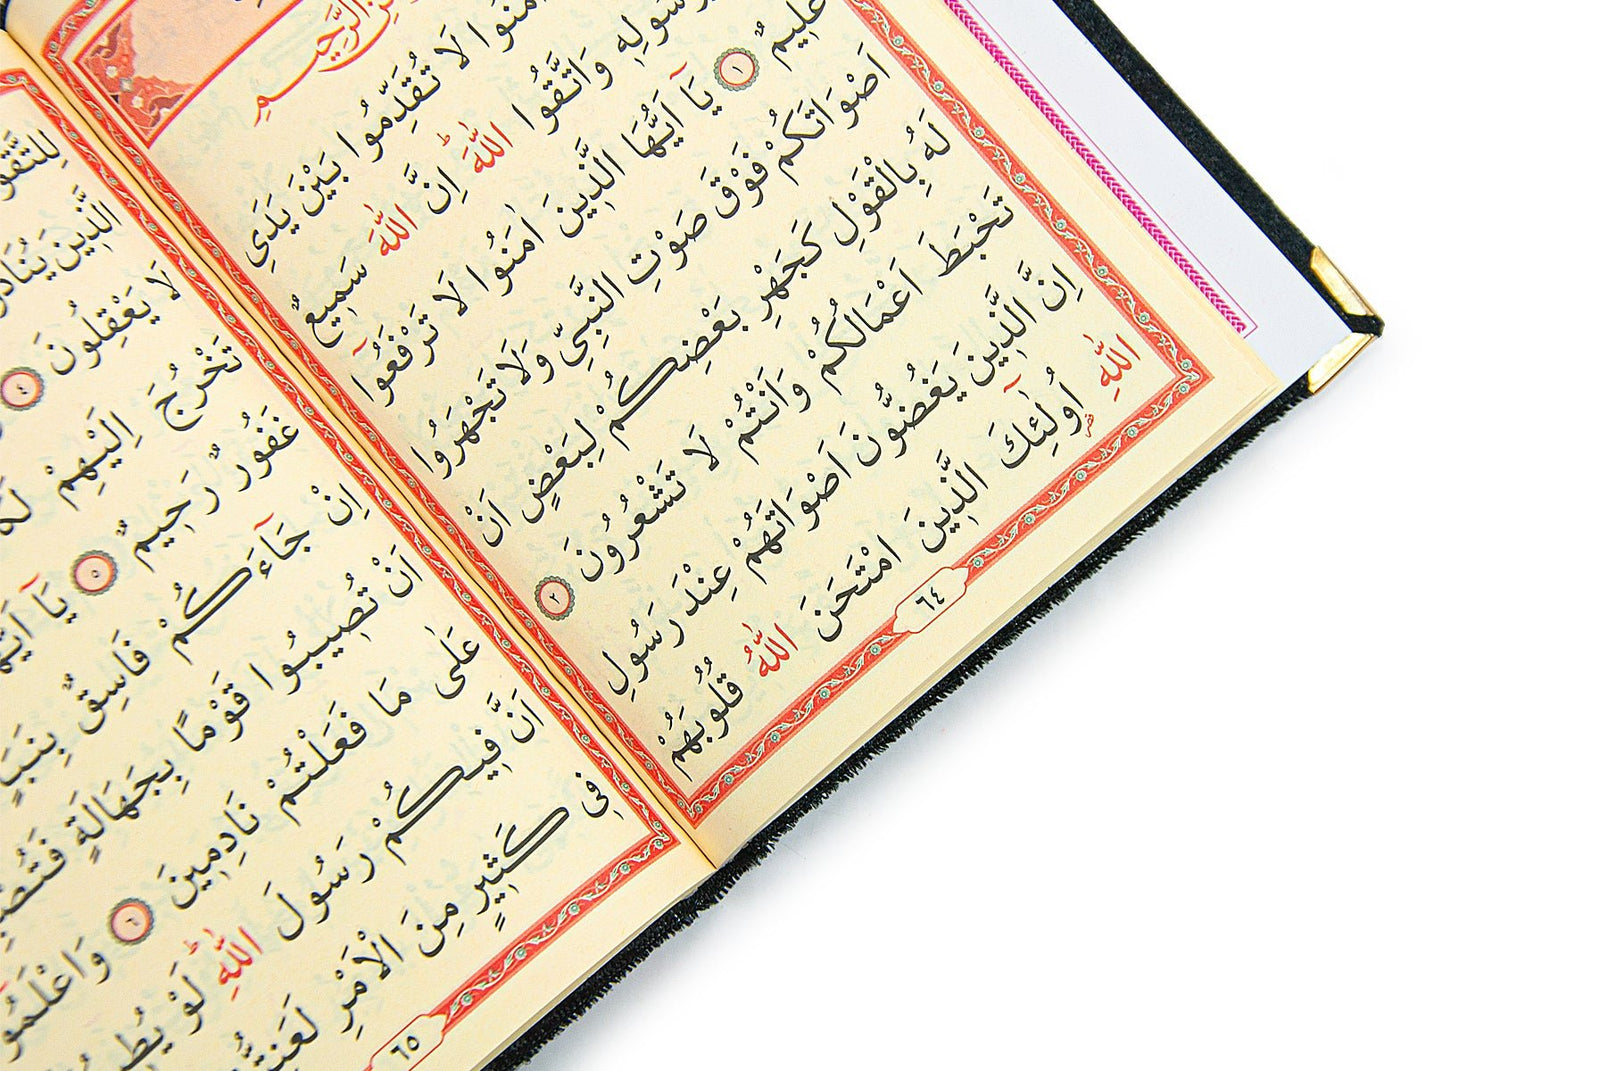 الرَّحِيمِ
اٰمَنُوا لَا تُقَدِّمُوا بَيْنَ يَدَىِ
وَرَسُولِهِ وَاتَّقُوا اللّٰهَ اِنَّ اللّٰهَ سَمِيعٌ
عَلِيمٌ ١ يَا اَيُّهَا الَّذِينَ اٰمَنُوا لَا تَرْفَعُوا
اَصْوَاتَكُمْ فَوْقَ صَوْتِ النَّبِىِّ وَلَا تَجْهَرُوا
لَهُ بِالْقَوْلِ كَجَهْرِ بَعْضِكُمْ لِبَعْضٍ اَنْ
تَحْبَطَ اَعْمَالُكُمْ وَاَنْتُمْ لَا تَشْعُرُونَ ٢
اِنَّ الَّذِينَ يَغُضُّونَ اَصْوَاتَهُمْ عِنْدَ رَسُولِ
اللّٰهِ اُولٰئِكَ الَّذِينَ امْتَحَنَ اللّٰهُ قُلُوبَهُمْ
٦٤
لِلتَّقْوٰى
الَّذِينَ يُنَادُونَكَ
لَا يَعْقِلُونَ ٤
تَخْرُجَ اِلَيْهِمْ
غَفُورٌ رَحِيمٌ ٥ يَا اَيُّهَا
اِنْ جَاءَكُمْ فَاسِقٌ بِنَبَاٍ
اَنْ تُصِيبُوا قَوْمًا بِجَهَالَةٍ
عَلٰى مَا فَعَلْتُمْ نَادِمِينَ ٦ وَاعْلَمُوا
اَنَّ فِيكُمْ رَسُولَ اللّٰهِ لَوْ
فِى كَثِيرٍ مِنَ الْاَمْرِ لَعَنِتُّمْ
٦٥